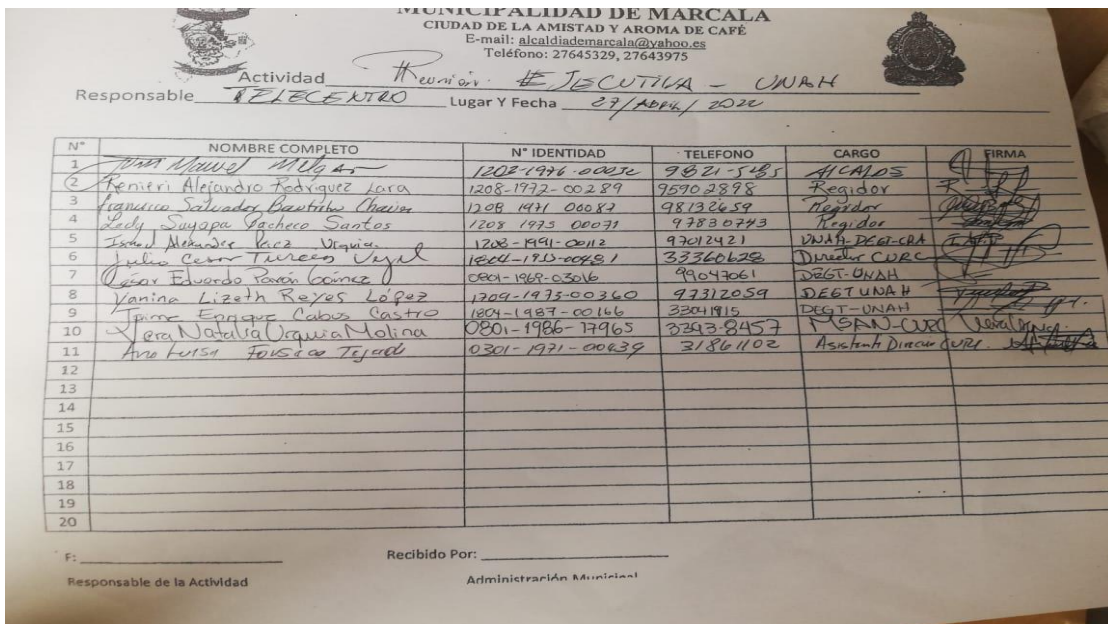 MUNICIPALIDAD DE MARCALA
CIUDAD DE LA AMISTAD Y AROMA DE CAFÉ
E-mail: alcaldiademarcala@yahoo.es
Teléfono: 27645329, 27643975
Actividad Reunión EJECUTIVA - UNAH
Responsable TELECENTRO Lugar Y Fecha 27/Abril/2022
N° NOMBRE COMPLETO N° IDENTIDAD TELEFONO CARGO FIRMA
1 Manuel Melgar
2 Renieri Alejandro Rodriguez Lara 1208-1972-00289 95902898 Regidor
3 Francisco Salvador Bautista 1208 1971 00087 98132659 Regidor
4 Ledy Suyapa Pacheco Santos 1208 1975 00071 97830743 Regidor
5 Alexander Urquia 1208-1991-00112 97012421 UNAH-DEGT-CRA
6 Julio Cesar 33360628 Director CURC
7 César Eduardo Gómez 0801-1969-03016 99047061 DEGT-UNAH
8 Yanina Lizeth Reyes López 1709-1975-00360 97312059 DEGT UNAH
9 Jaime Enrique Cabus Castro 1804-1987-00166 33041815 DEGT-UNAH
10 Vera Natalia Urquia Molina 0801-1986-17965 3393-8457 MSAN-CURC
11 Ana Luisa Fonseca Tejada 0301-1971-00439 31861102 Asistente CURC
12
13
14
15
16
17
18
19
20
F: Recibido Por:
Responsable de la Actividad Administración Municipal